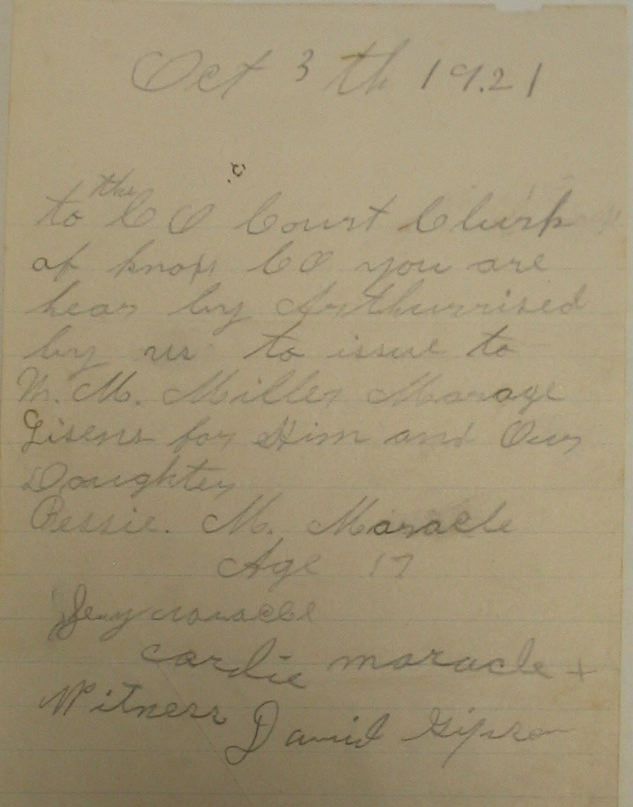 Oct 3 th 1921
to the CO Court Clurk
of knox CO you are
hear by Arthurrised
by us to issue to
W. M. Miller Marage
Lisens for Him and Our
Doughter
Bessie. M. Maracle
Age 17
maracle
cordie maracle +
Witness David Gipson